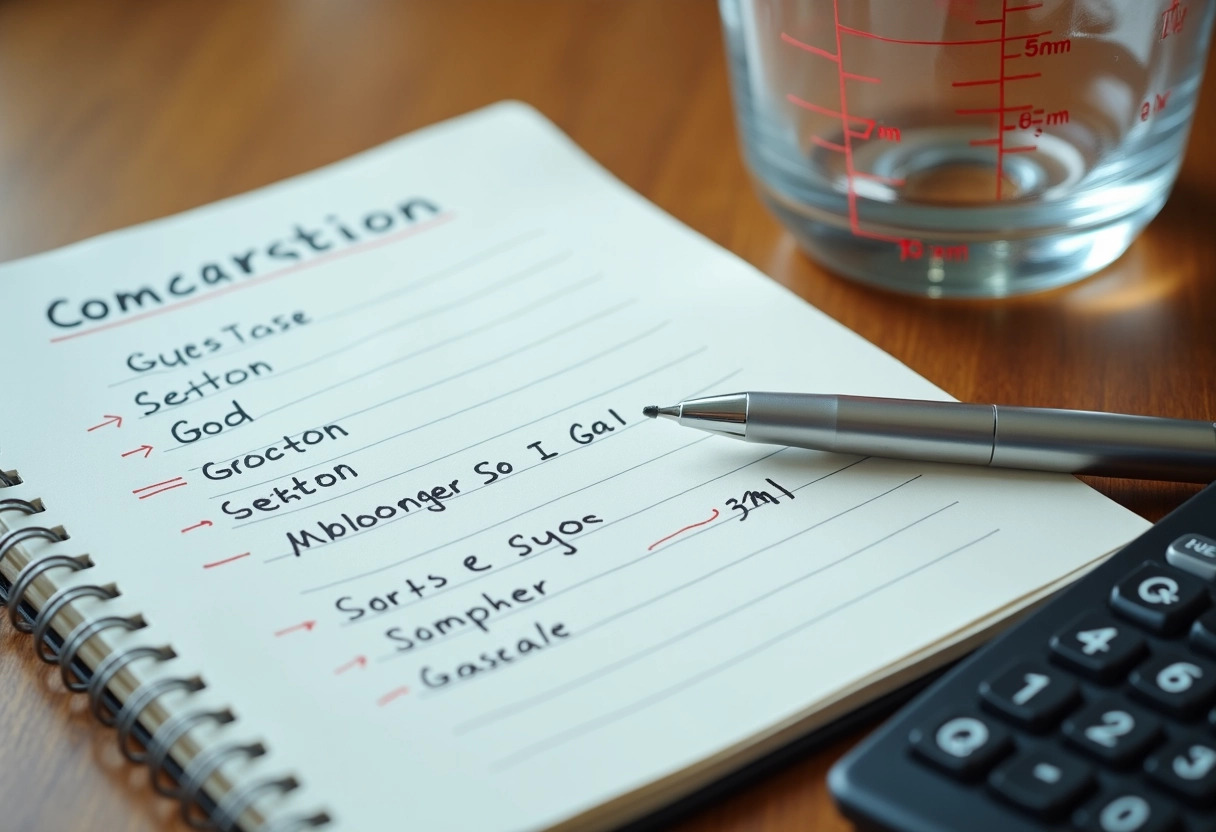 Comcarstion
GuesTase
Settton
God
Grocton
Sektton
Mbloonger So I Gal
Sorts e Syoc
3ml
Sompher
Gaseale
5nm
7m
8 m
4
1
6
2
3
0